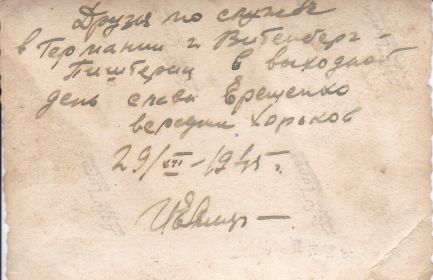 Друзья по службе
в Германии г. Витенберг-
Пиштериц в выходной
день слева Ерещенко
середин Хорьков
29/VII-1945г.